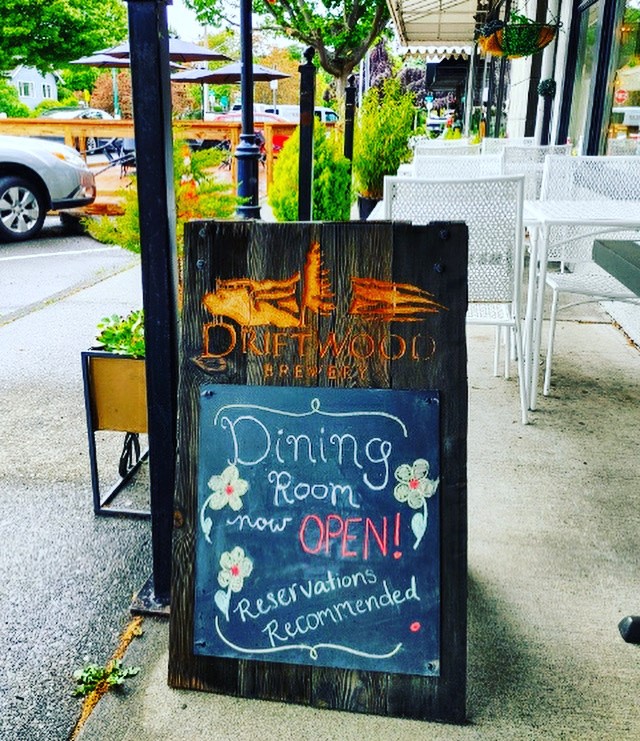 DRIFTWOOD
BREWERY
Dining
Room
now OPEN!
Reservations
Recommended